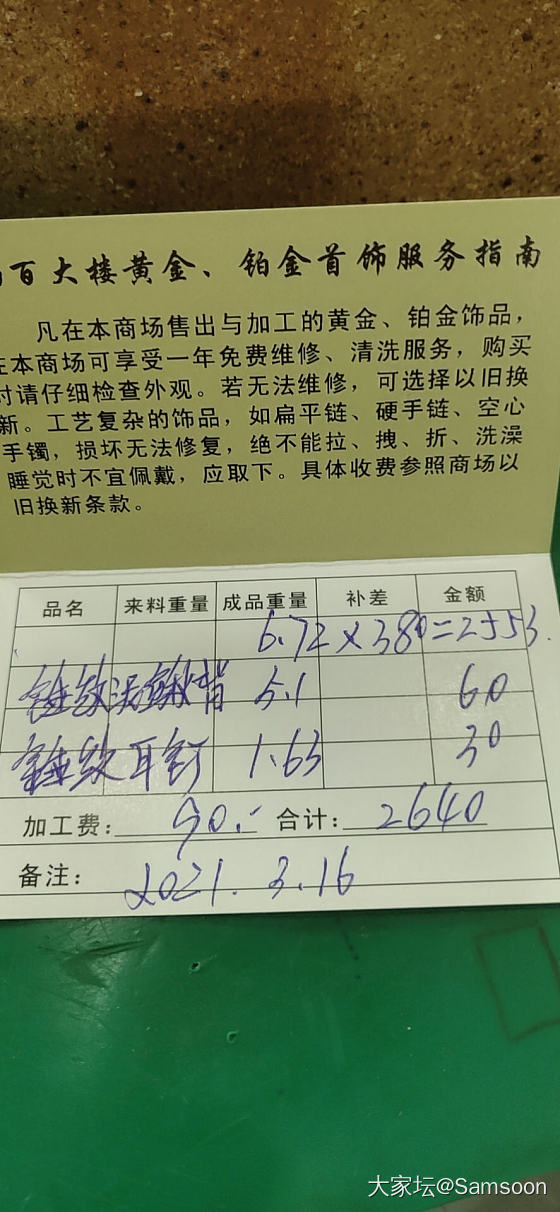 百大楼黄金、铂金首饰服务指南
凡在本商场售出与加工的黄金、铂金饰品，
在本商场可享受一年免费维修、清洗服务，购买
时请仔细检查外观。若无法维修，可选择以旧换
新。工艺复杂的饰品，如扁平链、硬手链、空心
手镯，损坏无法修复，绝不能拉、拽、折、洗澡
睡觉时不宜佩戴，应取下。具体收费参照商场以
旧换新条款。
品名 来料重量 成品重量 补差 金额
6.72×380=2553.
锤纹 5.1 60
锤纹耳钉 1.63 30
加工费：90.- 合计：2640
备注：2021.3.16
大家坛@Samsoon